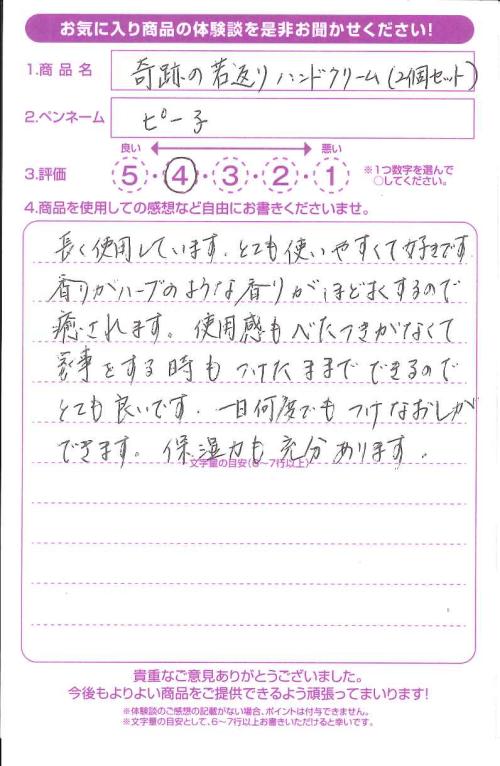 お気に入り商品の体験談を是非お聞かせください!
1.商品名 奇跡の若返りハンドクリーム(2個セット)
2.ペンネーム ピー子
良い 悪い
3.評価 5・4・3・2・1 ※1つ数字を選んで
○してください。
4.商品を使用しての感想など自由にお書きくださいませ。
長く使用しています。とても使いやすくて好きです
香りがハーブのような香りがほどよくするので
癒されます。使用感もべたつきがなくて
家事をする時もつけたままでできるので
とても良いです。一日何度でもつけなおしが
できます。保湿力も充分あります。
文字量の目安(6~7行以上)
貴重なご意見ありがとうございました。
今後もよりよい商品をご提供できるよう頑張ってまいります!
※体験談のご感想の記載がない場合、ポイントは付与できません。
※文字量の目安として、6~7行以上お書きいただけると幸いです。